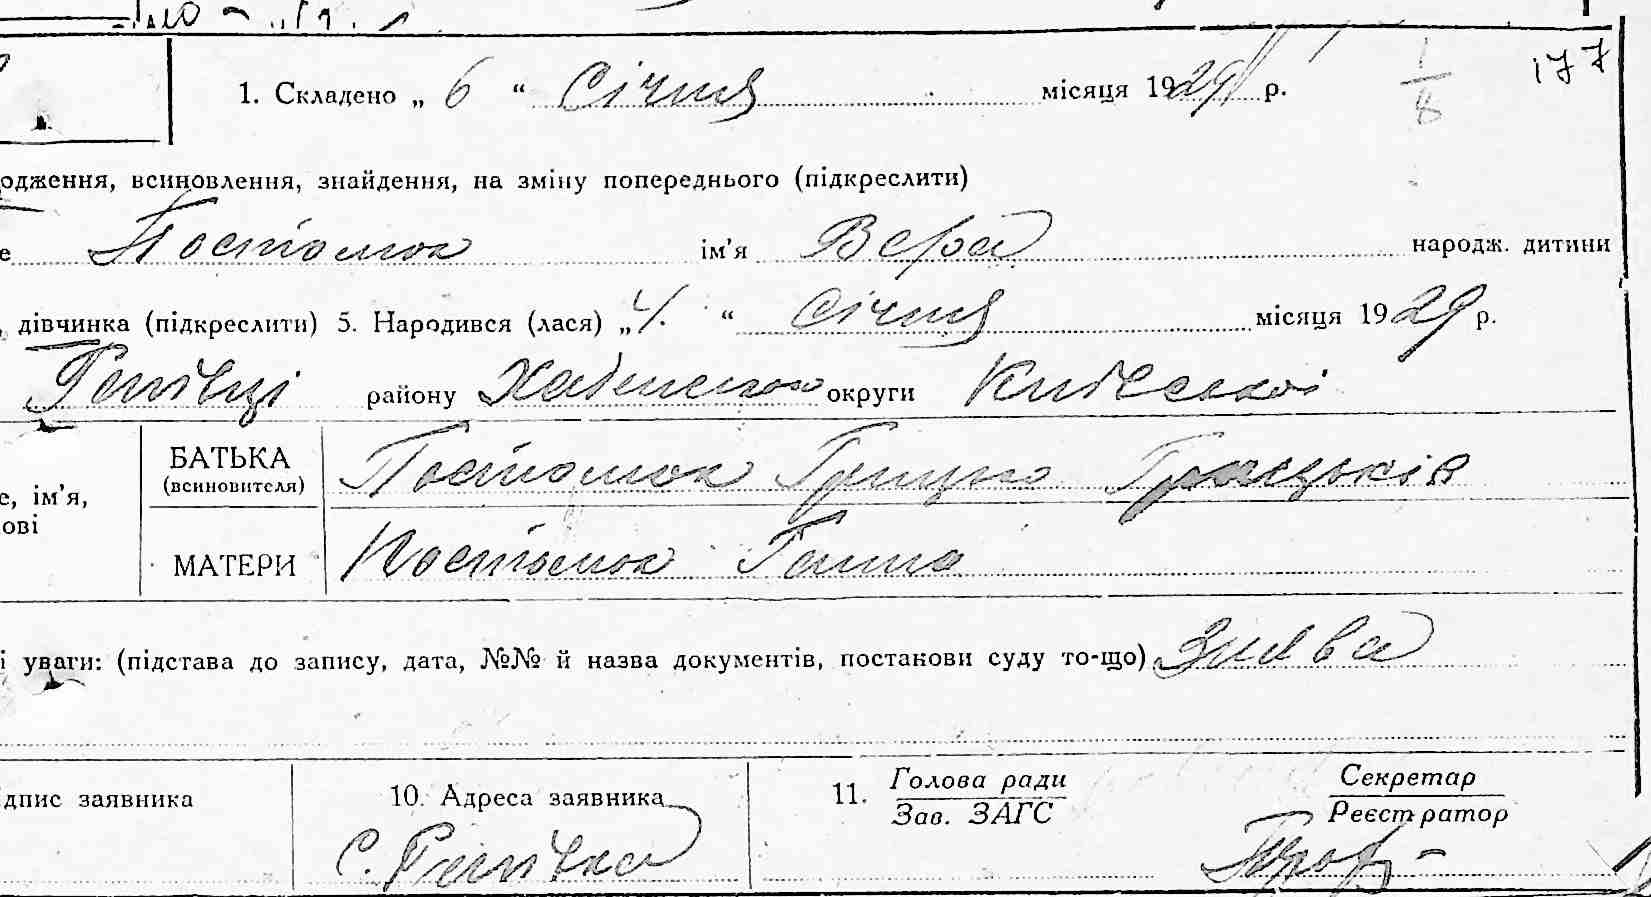 177
1/8
1. Складено „ 6 “ Січня місяця 1929 р.
одження, всиновлення, знайдення, на зміну попереднього (підкреслити)
е Постомок ім’я Вера народж. дитини
, дівчинка (підкреслити) 5. Народився (лася) „ 4. “ січня місяця 1929 р.
району Хабенського округи Київської
БАТЬКА
(всиновителя)
Постомок Грицько Грицьків
е, ім’я,
ові
МАТЕРИ Постомок Ганна
і уваги: (підстава до запису, дата, №№ й назва документів, постанови суду то-що) Заява
дпис заявника
10. Адреса заявника
с.
11. Голова ради
Зав. ЗАГС
Секретар
Реєстратор